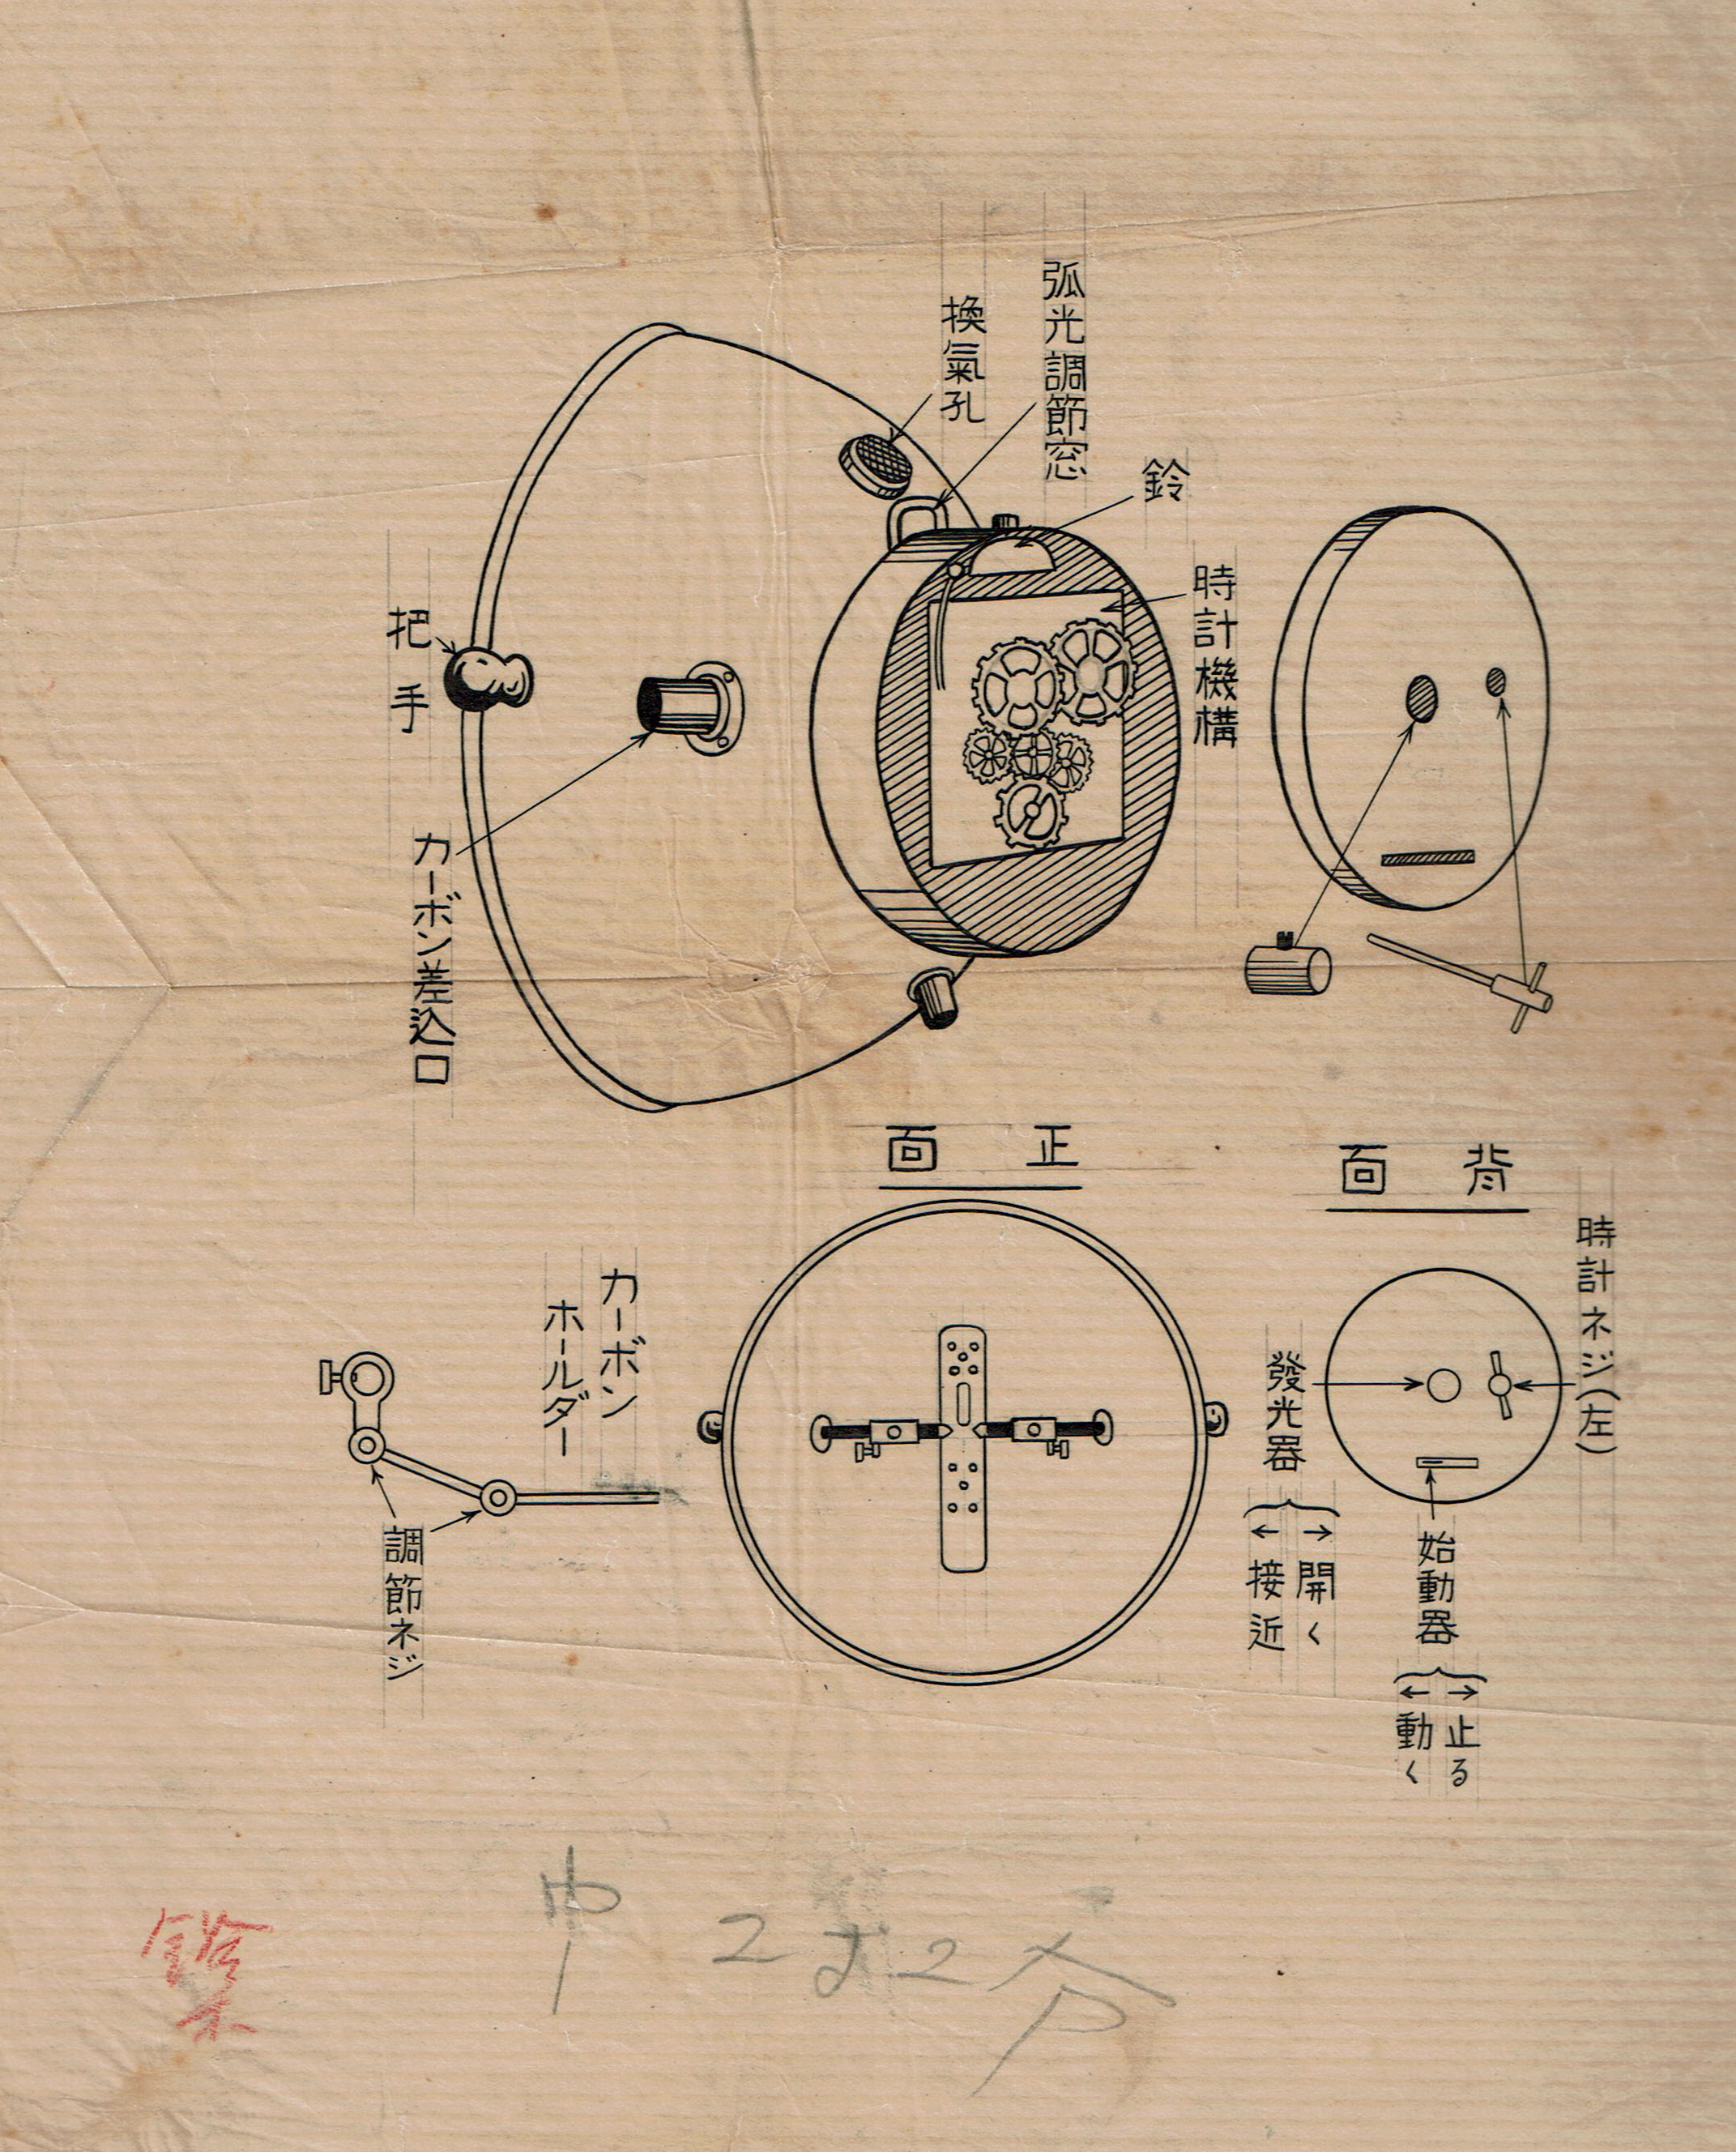 弧光調節窓
換氣孔
鈴
時計機構
把手
カーボン差込口
背面
正面
時計ネジ(左)
發光器
→開く
←接近
始動器
→止る
←動く
カーボン
ホールダー
調節ネジ